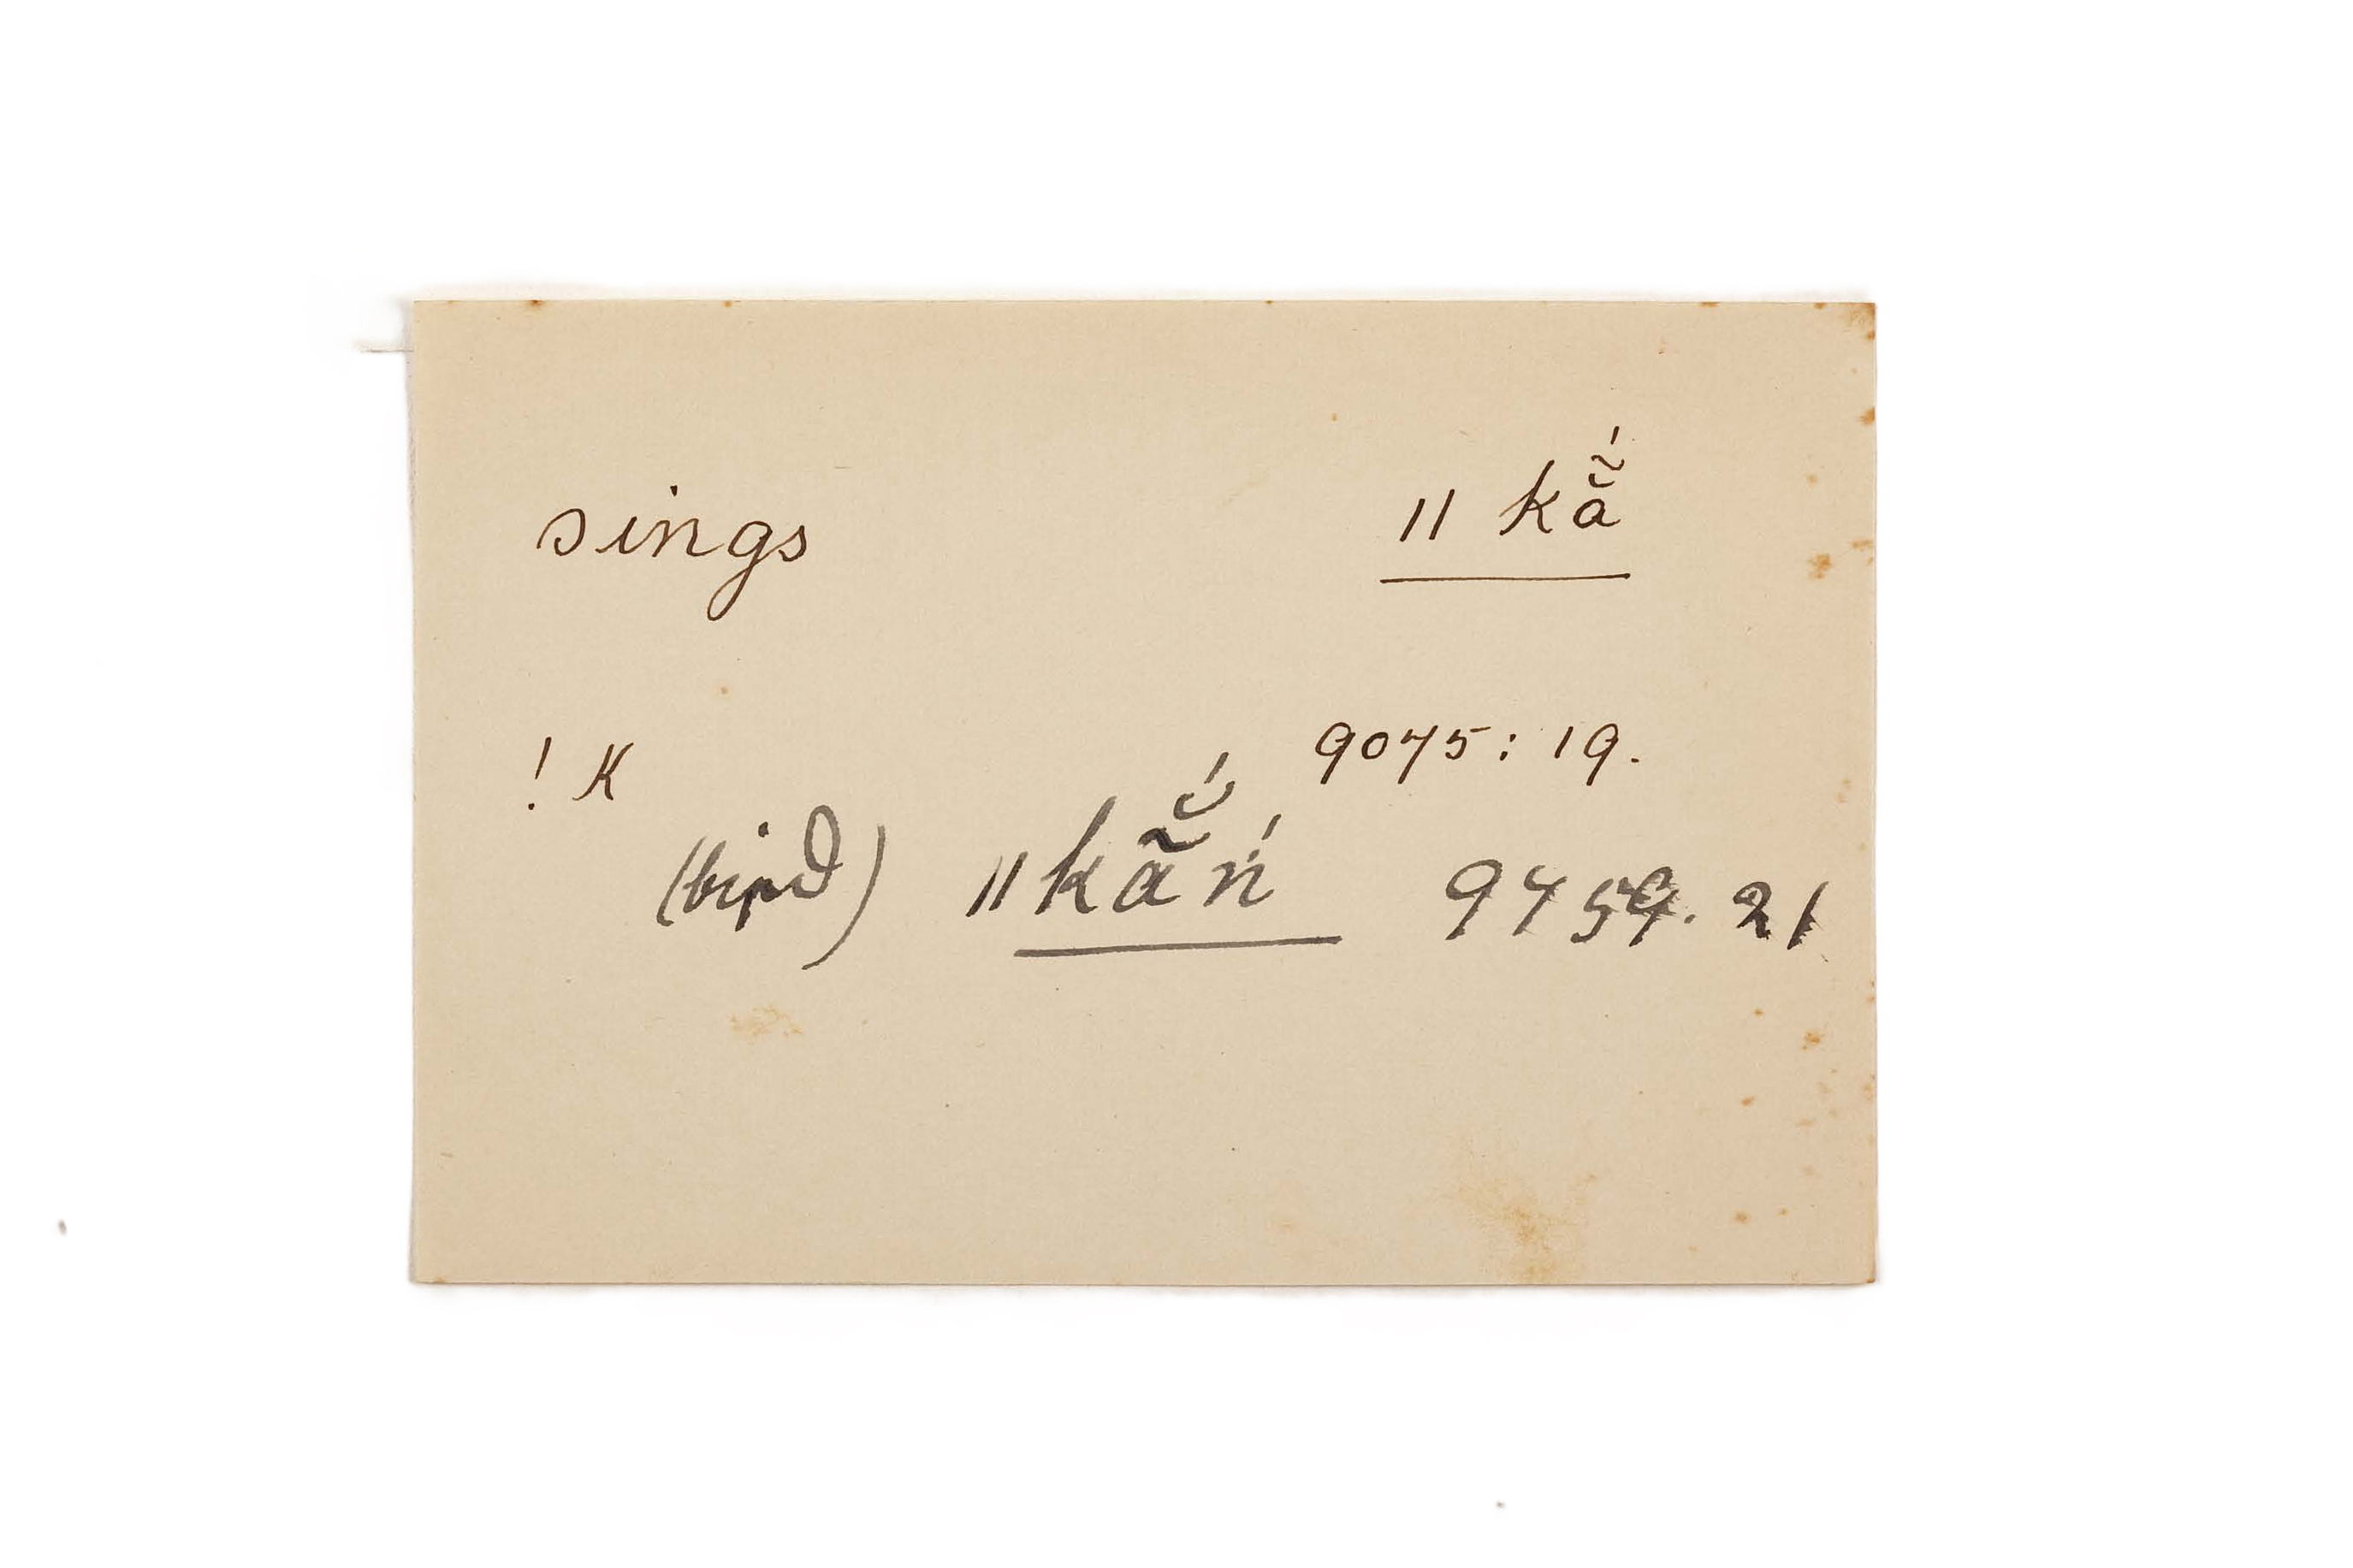 sings ǁ kã̆́
! K 9075: 19.
(bird) ǁkã̆́ń 9459. 21